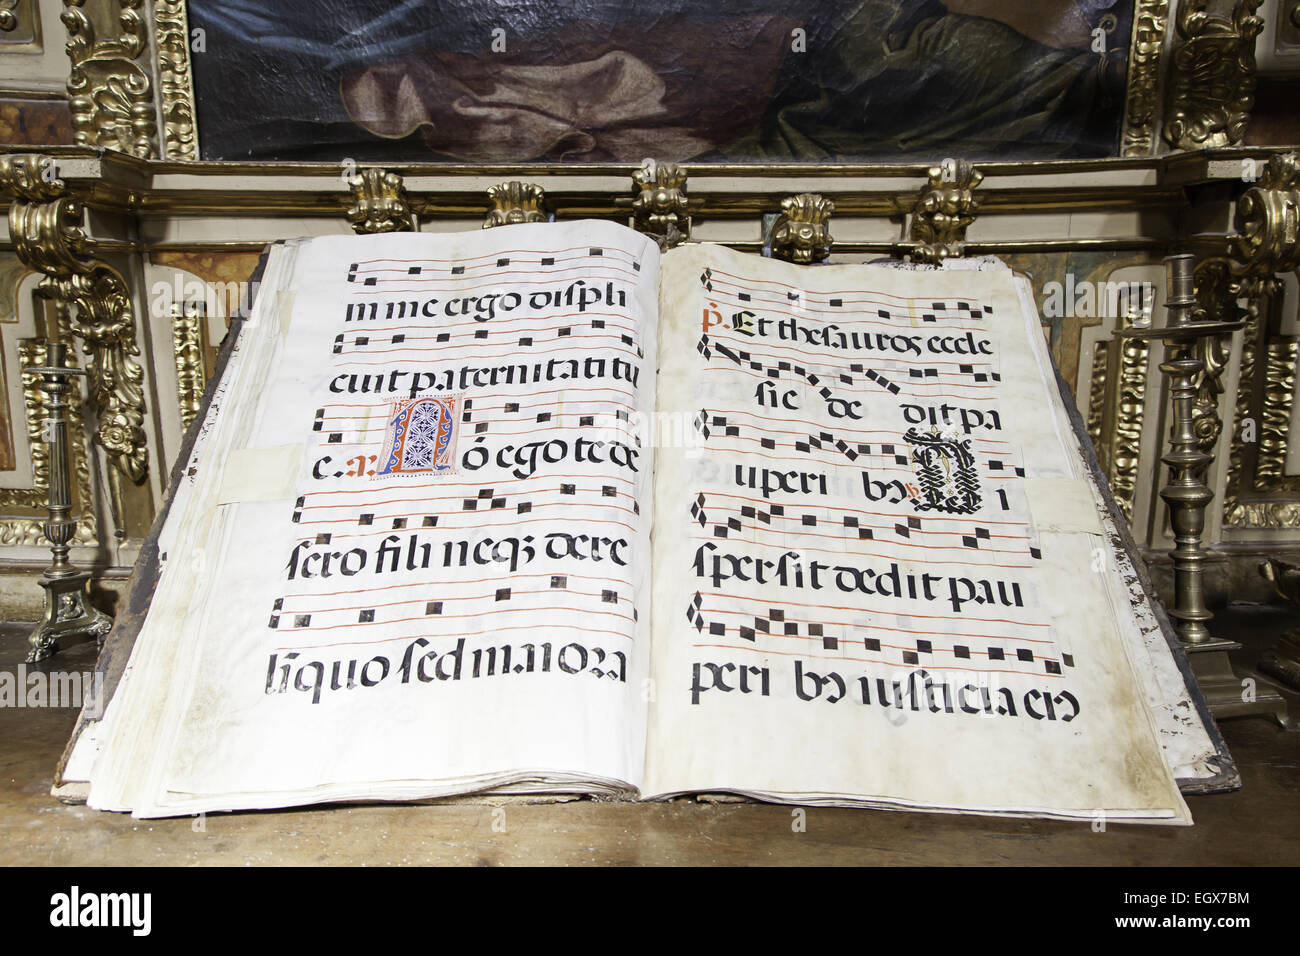 in me ergo displi
cuit paternitati tu
e. A. Nō ego te de
sero fili neqʒ dere
linquo sed maiora
p̄. Et thesauros eccle
sie dedit pa
uperibꝰ
R. Di
spersit dedit pau
peribꝰ iusticia eiꝰ
alamy
Image ID: EGX7BM
www.alamy.com